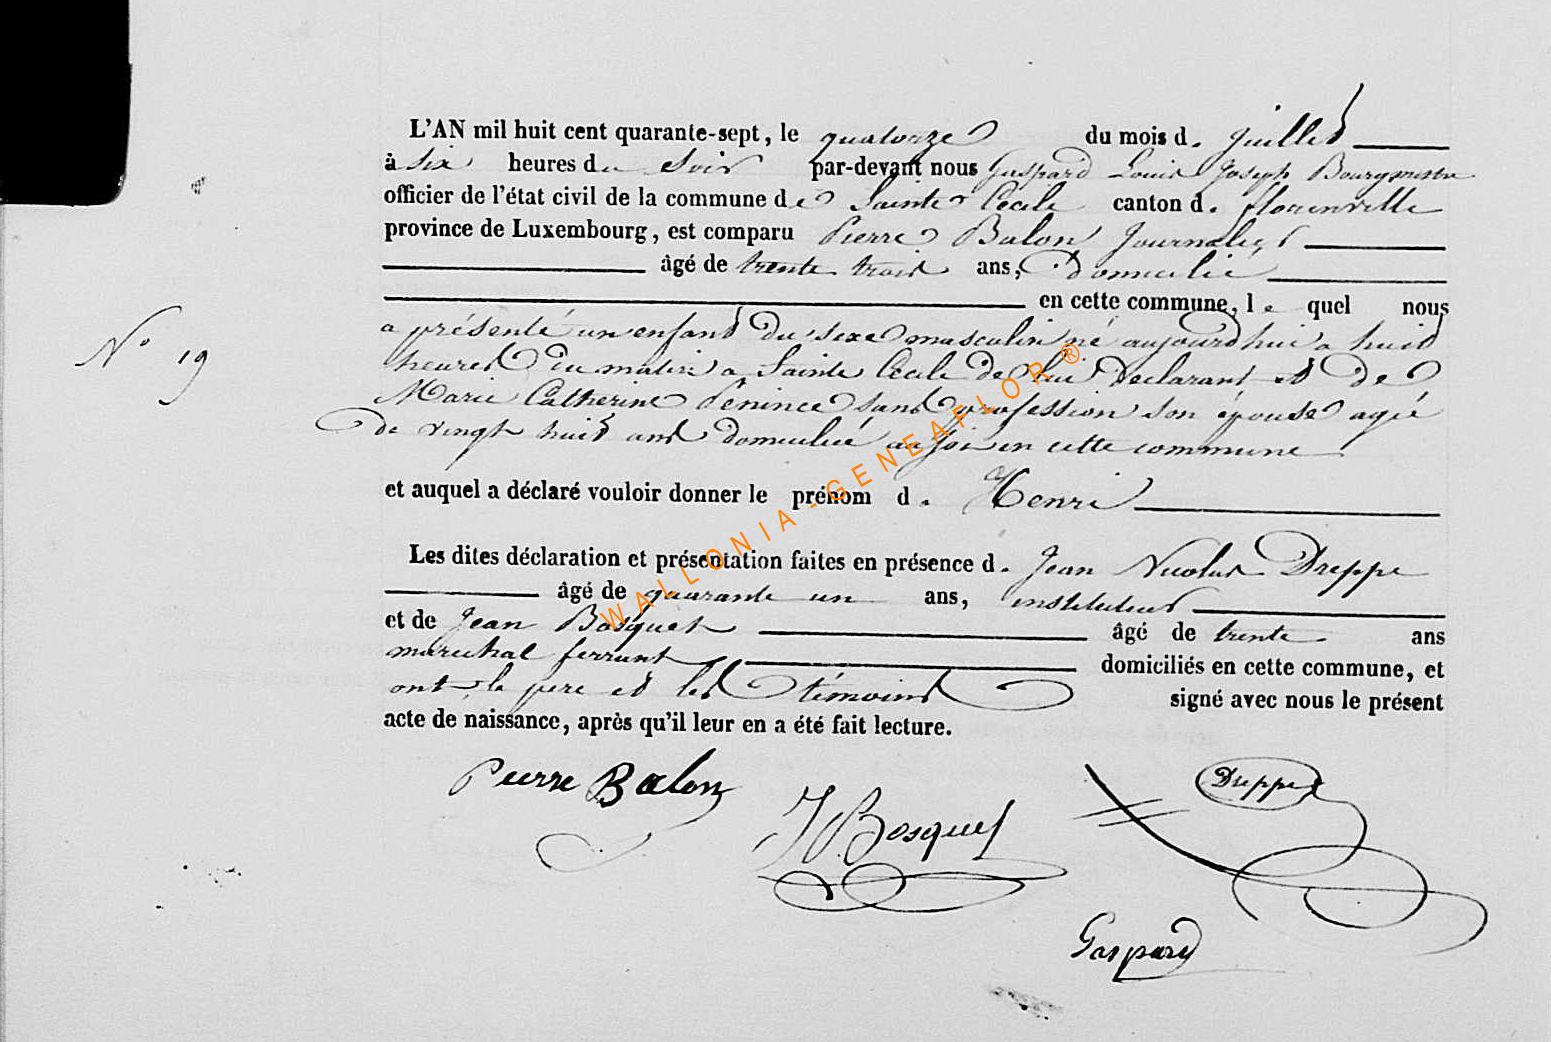 L'AN mil huit cent quarante-sept, le quatorze du mois d. juillet
à six heures du soir par-devant nous Gaspard Louis Joseph Bourgmestre
officier de l'état civil de la commune de Sainte Cecile canton d. florenville
province de Luxembourg, est comparu Pierre Balon Journalier
âgé de trente trois ans, Domicilié
en cette commune, le quel nous
a présenté un enfant du sexe masculin né aujourd'hui a huit
heures du matin a Sainte Cecile de lui Declarant et de
Marie Catherine sans profession son épouse agée
de vingt huit ans domiciliée en cette commune
et auquel a déclaré vouloir donner le prénom d. Henri
Les dites déclaration et présentation faites en présence d. Jean Nicolas Dreppe
âgé de quarante un ans, instituteur
et de Jean Bosquet âgé de trente ans
marechal ferrant domiciliés en cette commune, et
ont le pere et les témoins signé avec nous le présent
acte de naissance, après qu'il leur en a été fait lecture.
N° 19
Pierre Balon
J Bosquet
Dreppe
Gaspard
WALLONIA-GENEAFLOR®